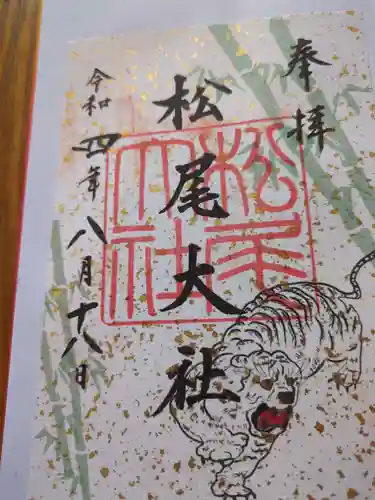 奉拝
松尾大社
松尾大社
令和四年八月十八日